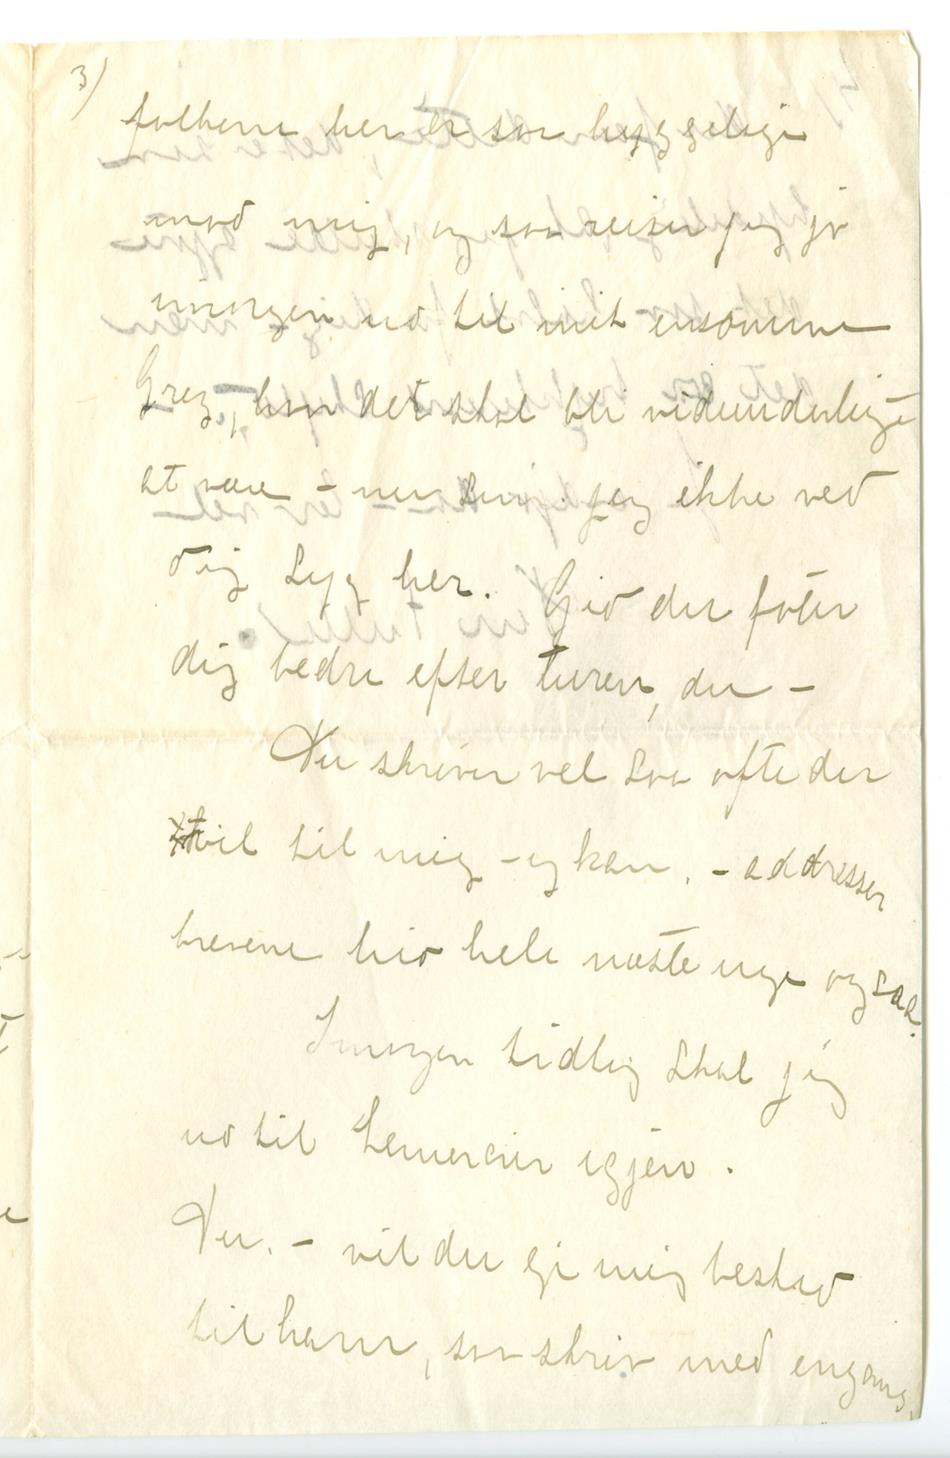 3)
folkene her er saa hyggelige
mod mig, og saa reiser jeg jo
imorgen ud til mit ensomme
Grez, hvor det skal bli vidunderligt
at være – nu jeg ikke ved
dig syg her. Gid du føler
dig bedre efter turen, du –
Du skriver vel saa ofte du
vil til mig – og kan. – addresser
brevene hid hele næste uge ogsaa.
Imorgen tidlig skal jeg
ud til Lemercier igjen.
Du. – vil du gi mig besked
til ham, saa skriv med engang,